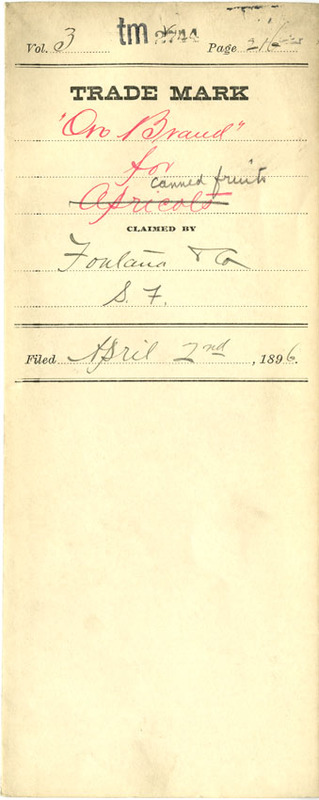 Vol. 3 tm 2744 Page 216
TRADE MARK
"Oro Brand"
for
canned fruits
Apricots
CLAIMED BY
Fontana & Co
S. F.
Filed April 2nd, 1896.